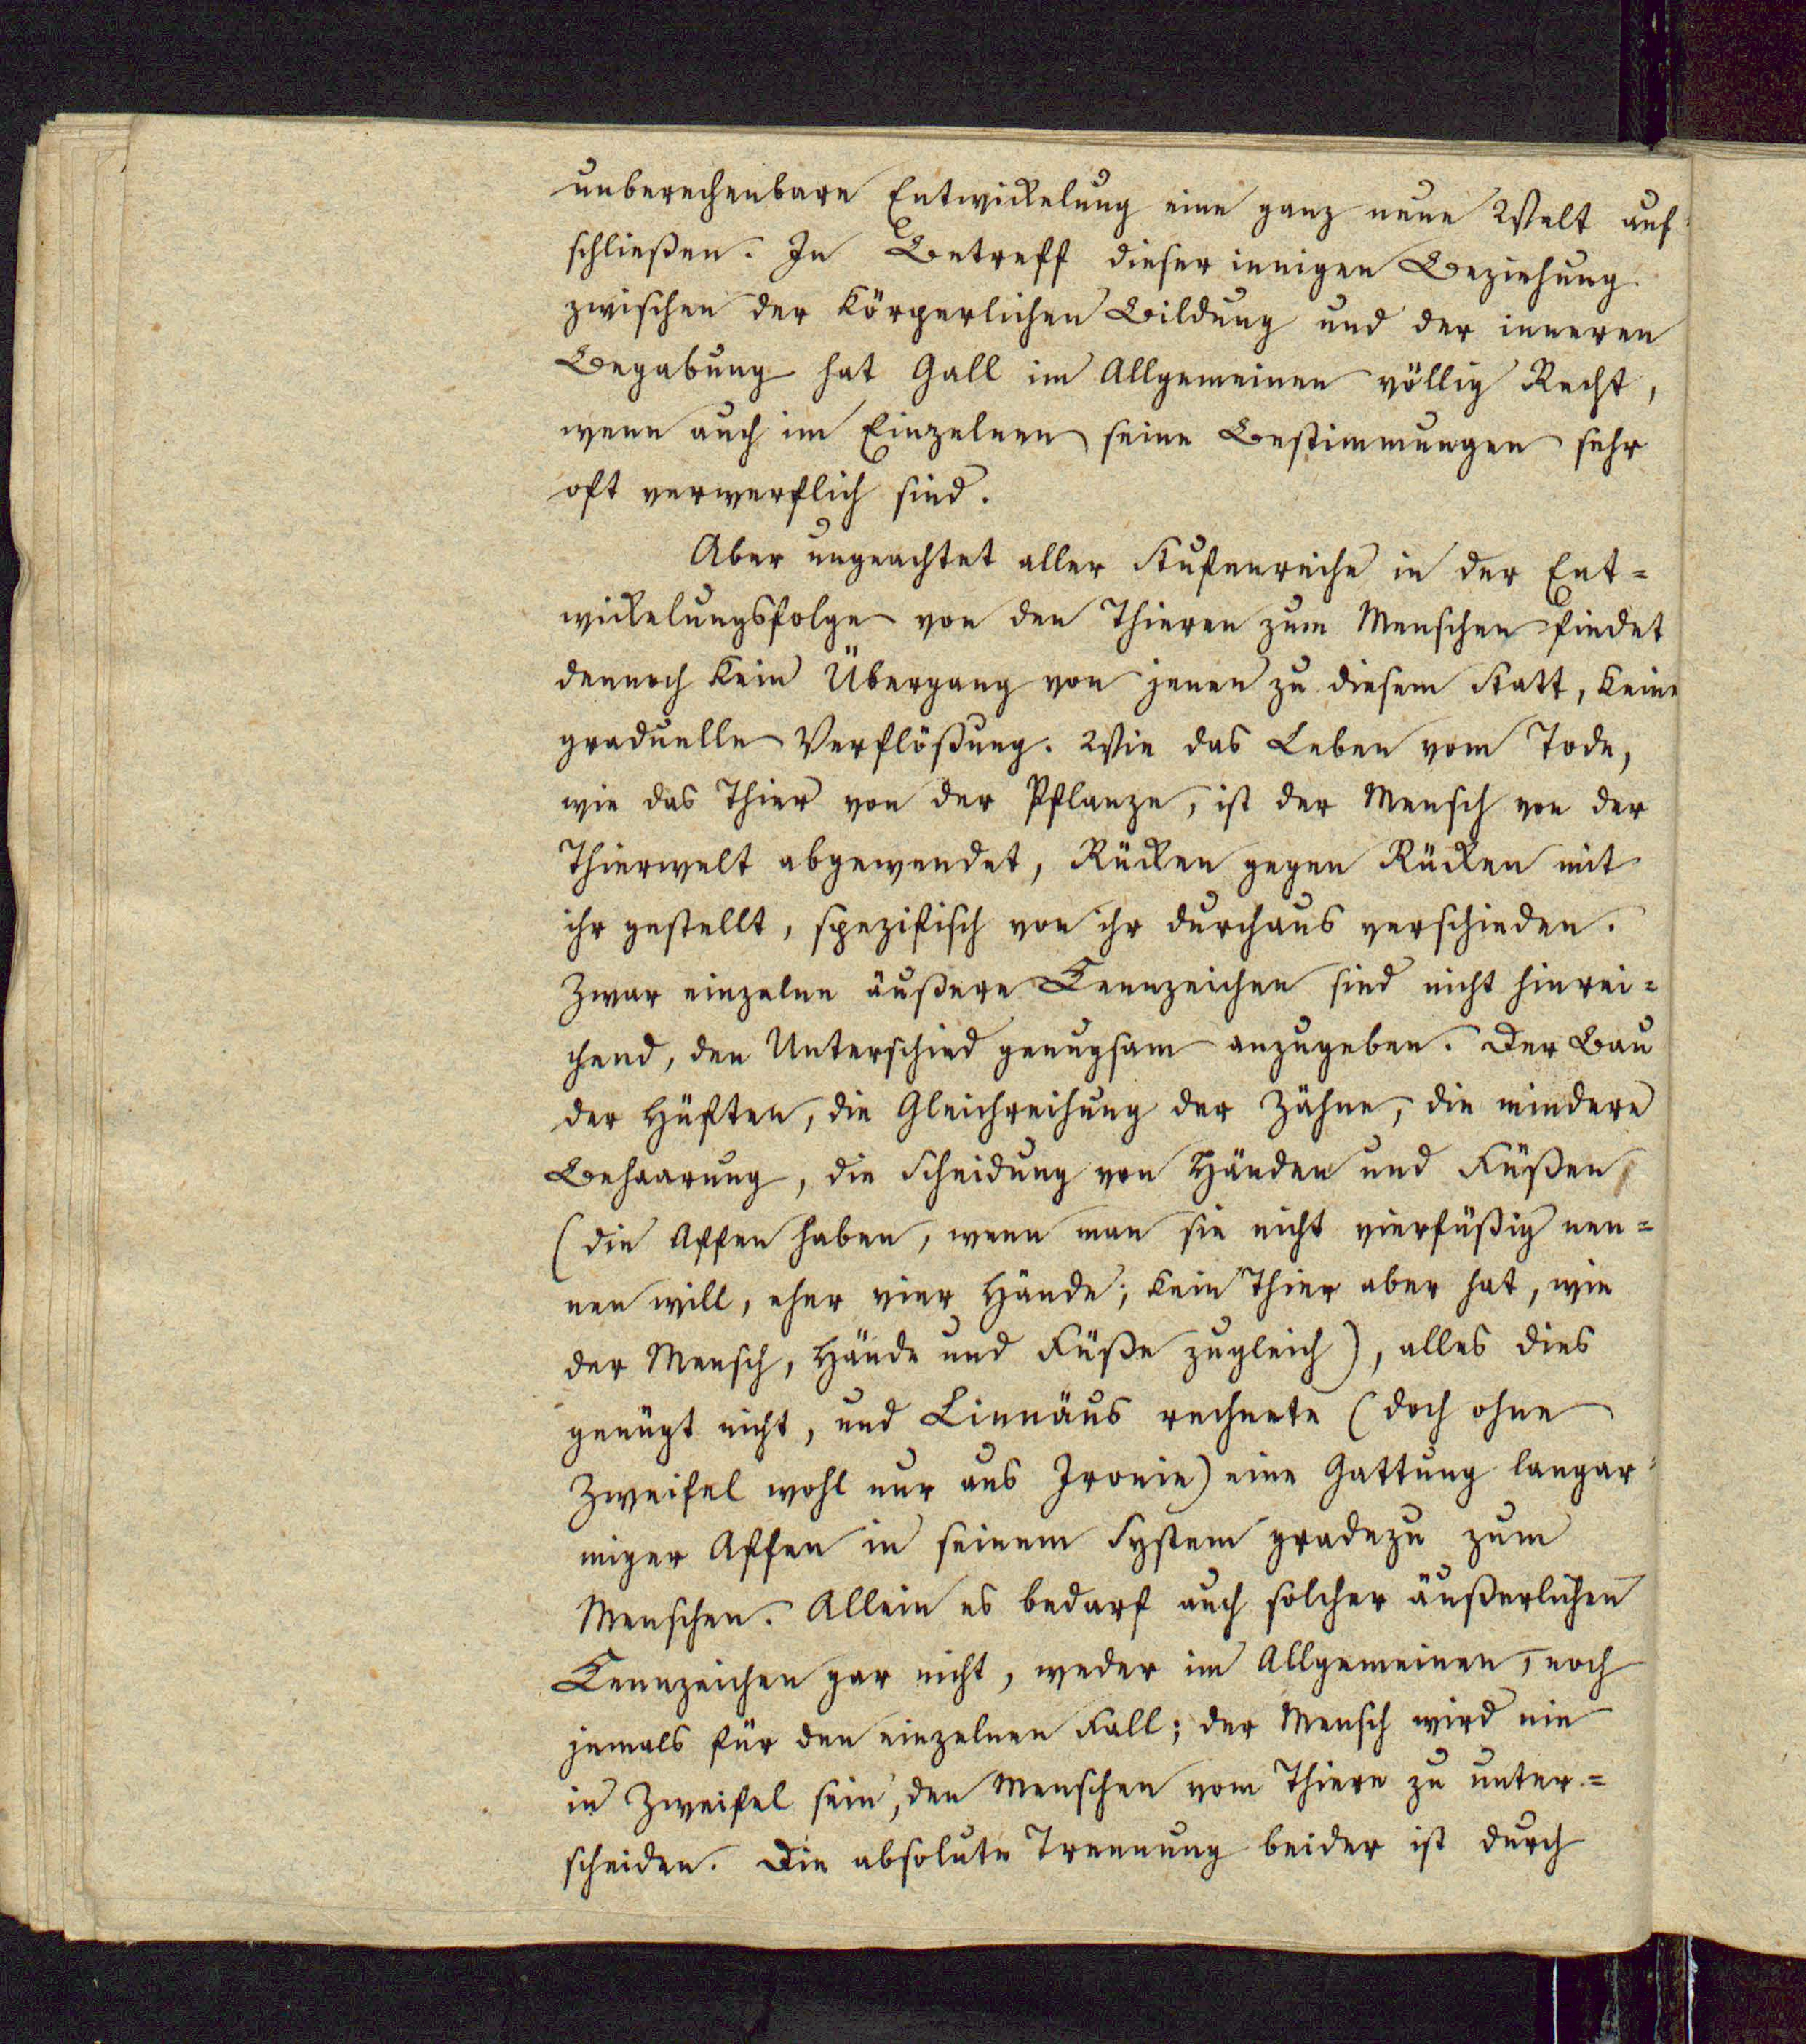 unberechenbare Entwickelung eine ganz neue Welt auf-
schließen. In Betreff dieser innigen Beziehung
zwischen der körperlichen Bildung und der inneren
Begabung hat Gall im Allgemeinen völlig Recht,
wenn auch im Einzelnen seine Bestimmungen sehr
oft verwerflich sind.
Aber ungeachtet aller Stufenreihe in der Ent=
wickelungsfolge von den Thieren zum Menschen findet
dennoch kein Übergang von jenen zu diesem Statt, keine
graduelle Verflößung. Wie das Leben vom Tode,
wie das Thier von der Pflanze, ist der Mensch von der
Thierwelt abgewendet, Rücken gegen Rücken mit
ihr gestellt, spezifisch von ihr durchaus verschieden.
Zwar einzelne äußere Kennzeichen sind nicht hinrei=
chend, den Unterschied genugsam anzugeben. Der Bau
der Hüften, die Gleichreihung der Zähne, die mindere
Behaarung, die Scheidung von Händen und Füßen
(die Affen haben, wenn man sie nicht vierfüßig nen=
nen will, eher vier Hände; kein Thier aber hat, wie
der Mensch, Hände und Füße zugleich), alles dies
genügt nicht, und Linnäus rechnete (doch ohne
Zweifel wohl nur aus Ironie) eine Gattung langar=
miger Affen in seinem System gradezu zum
Menschen. Allein es bedarf auch solcher äußerlichen
Kennzeichen gar nicht, weder im Allgemeinen, noch
jemals für den einzelnen Fall; der Mensch wird nie
in Zweifel sein, den Menschen vom Thiere zu unter=
scheiden. Die absolute Trennung beider ist durch